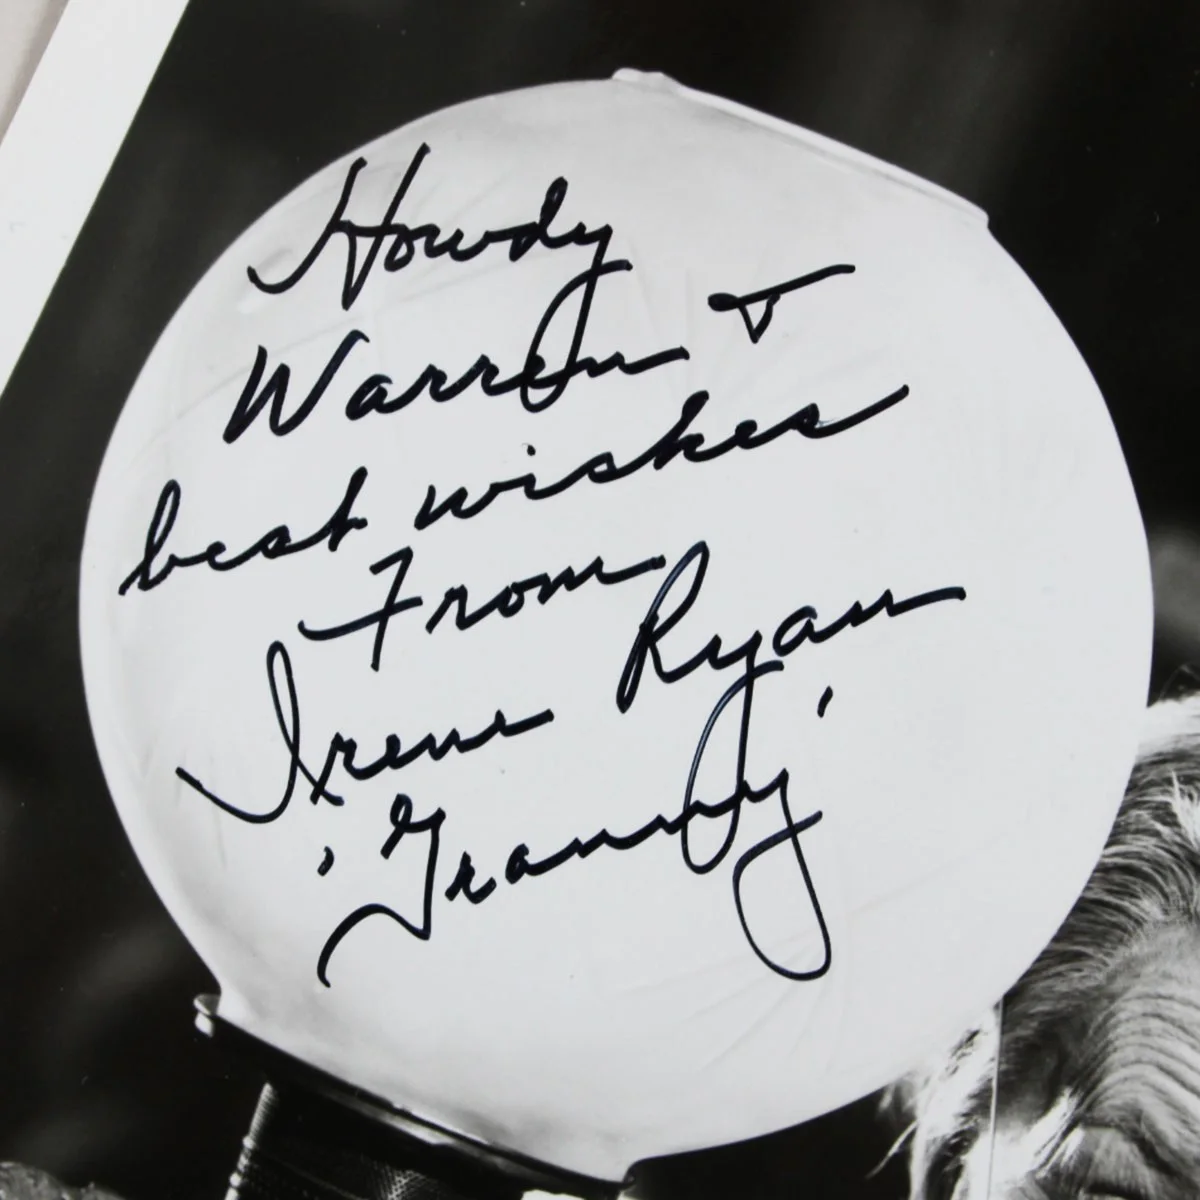 Howdy
Warren &
best wishes
From
Irene Ryan
'Granny'